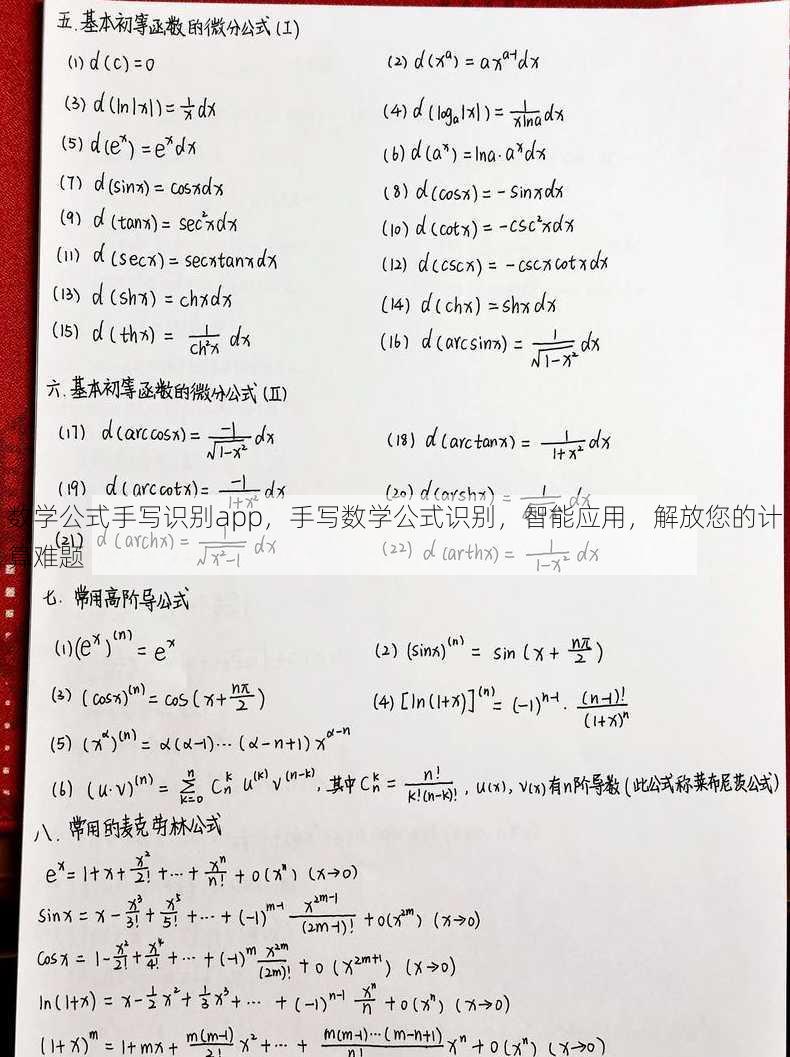 五.基本初等函数的微分公式(I)
(1) d(c)=0 (2) d(x^a)=ax^{a-1}dx
(3) d(ln|x|)=\frac{1}{x}dx (4) d(log_a|x|)=\frac{1}{xlna}dx
(5) d(e^x)=e^xdx (6) d(a^x)=lna·a^xdx
(7) d(sinx)=cosxdx (8) d(cosx)=-sinxdx
(9) d(tanx)=sec²xdx (10) d(cotx)=-csc²xdx
(11) d(secx)=secxtanxdx (12) d(cscx)=-cscxcotxdx
(13) d(shx)=chxdx (14) d(chx)=shxdx
(15) d(thx)=\frac{1}{ch²x}dx (16) d(arcsinx)=\frac{1}{\sqrt{1-x²}}dx
六.基本初等函数的微分公式(II)
(17) d(arccosx)=\frac{-1}{\sqrt{1-x²}}dx (18) d(arctanx)=\frac{1}{1+x²}dx
(19) d(arccotx)=\frac{-1}{1+x²}dx (20) d(arshx)= dx
数学公式手写识别app，手写数学公式识别，智能应用，解放您的计
算难题
(21) d(archx)=\frac{1}{\sqrt{x²-1}}dx (22) d(arthx)=\frac{1}{1-x²}dx
七.常用高阶导公式
(1) (e^x)^{(n)}=e^x (2) (sinx)^{(n)}=sin(x+\frac{nπ}{2})
(3) (cosx)^{(n)}=cos(x+\frac{nπ}{2}) (4) [ln(1+x)]^{(n)}=(-1)^{n-1}·\frac{(n-1)!}{(1+x)^n}
(5) (x^α)^{(n)}=α(α-1)…(α-n+1)x^{α-n}
(6) (u·v)^{(n)}=\sum_{k=0}^{n}C_n^k u^{(k)}v^{(n-k)}，其中C_n^k=\frac{n!}{k!(n-k)!}，u(x),v(x)有n阶导数(此公式称莱布尼茨公式)
八.常用的麦克劳林公式
e^x=1+x+\frac{x²}{2!}+…+\frac{x^n}{n!}+o(x^n) (x→0)
sinx=x-\frac{x³}{3!}+\frac{x^5}{5!}+…+(-1)^{m-1}\frac{x^{2m-1}}{(2m-1)!}+o(x^{2m}) (x→0)
cosx=1-\frac{x²}{2!}+\frac{x^4}{4!}+…+(-1)^m\frac{x^{2m}}{(2m)!}+o(x^{2m+1}) (x→0)
ln(1+x)=x-\frac{1}{2}x²+\frac{1}{3}x³+…+(-1)^{n-1}\frac{x^n}{n}+o(x^n) (x→0)
(1+x)^m=1+mx+\frac{m(m-1)}{2!}x²+…+\frac{m(m-1)…(m-n+1)}{n!}x^n+o(x^n) (x→0)